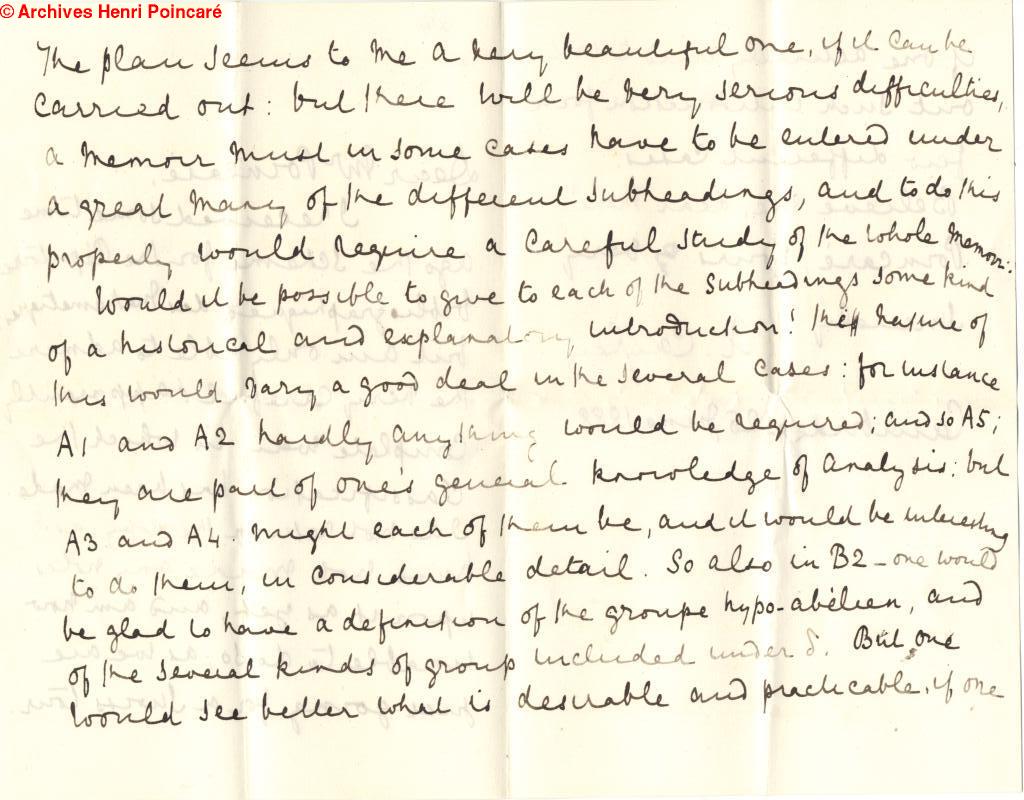 © Archives Henri Poincaré
The plan seems to me a very beautiful one, if it can be
carried out: but there will be very serious difficulties,
a memoir must in some cases have to be entered under
a great many of the different subheadings, and to do this
properly would require a careful study of the whole memoir.
Would it be possible to give to each of the subheadings some kind
of a historical and explanatory introduction! the nature of
this would vary a good deal in the several cases: for instance
A1 and A2 hardly anything would be required; and so A5;
they are part of one's general knowledge of analysis: but
A3 and A4. might each of them be, and it would be interesting
to do them, in considerable detail. So also in B2 - one would
be glad to have a definition of the groupe hypo-abélien, and
of the several kinds of group included under δ. But one
would see better what is desirable and practicable, if one